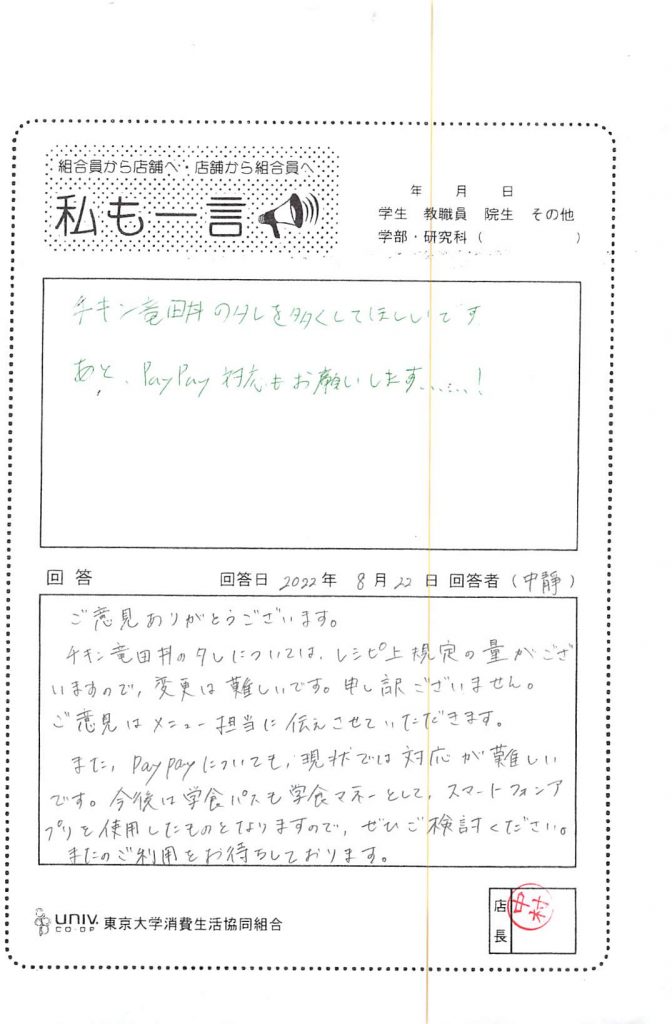 組合員から店舗へ・店舗から組合員へ
私も一言
年 月 日
学生 教職員 院生 その他
学部・研究科（ ）
チキン竜田丼のタレを多くしてほしいです
あと、PayPay対応もお願いします……!
回答 回答日 2022年 8月22日 回答者（中靜）
ご意見ありがとうございます。
チキン竜田丼のタレについては、レシピ上規定の量がござ
いますので、変更は難しいです。申し訳ございません。
ご意見はメニュー担当に伝えさせていただきます。
また、Paypayについても、現状では対応が難しい
です。今後は学食パスも学食マネーとして、スマートフォンア
プリを使用したものとなりますので、ぜひご検討ください。
またのご利用をお待ちしております。
UNIV. CO-OP 東京大学消費生活協同組合
店長
中村